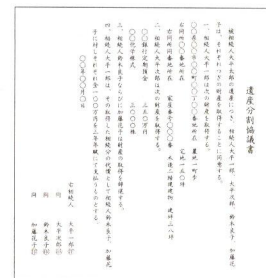 遺産分割協議書
被相続人大平太郎の遺産につき、相続人大平一郎、大平次郎、鈴木良子、加藤花
子は、それぞれつぎの財産を取得することに同意する。
一 相続人大平一郎は次の財産を取得する。
〇〇県〇〇市〇〇町〇〇〇番地所在
右同所同番地所在 家屋番号〇〇〇番 木造二階建建物
二 相続人大平次郎は次の財産を取得する。
〇〇銀行定期預金 三五〇万円
〇〇化学株式 三〇〇〇株
三 相続人鈴木良子ならびに加藤花子は財産の取得を辞退する。
四 相続人大平一郎は、その取得した相続分の代償として相続人鈴木良子、加藤花
子に対しそれぞれ金一〇〇万円を三年年賦にて支払うものとする。
〇〇年〇〇月〇日
右相続人 大平一郎㊞
同 大平次郎㊞
同 鈴木良子㊞
同 加藤花子㊞